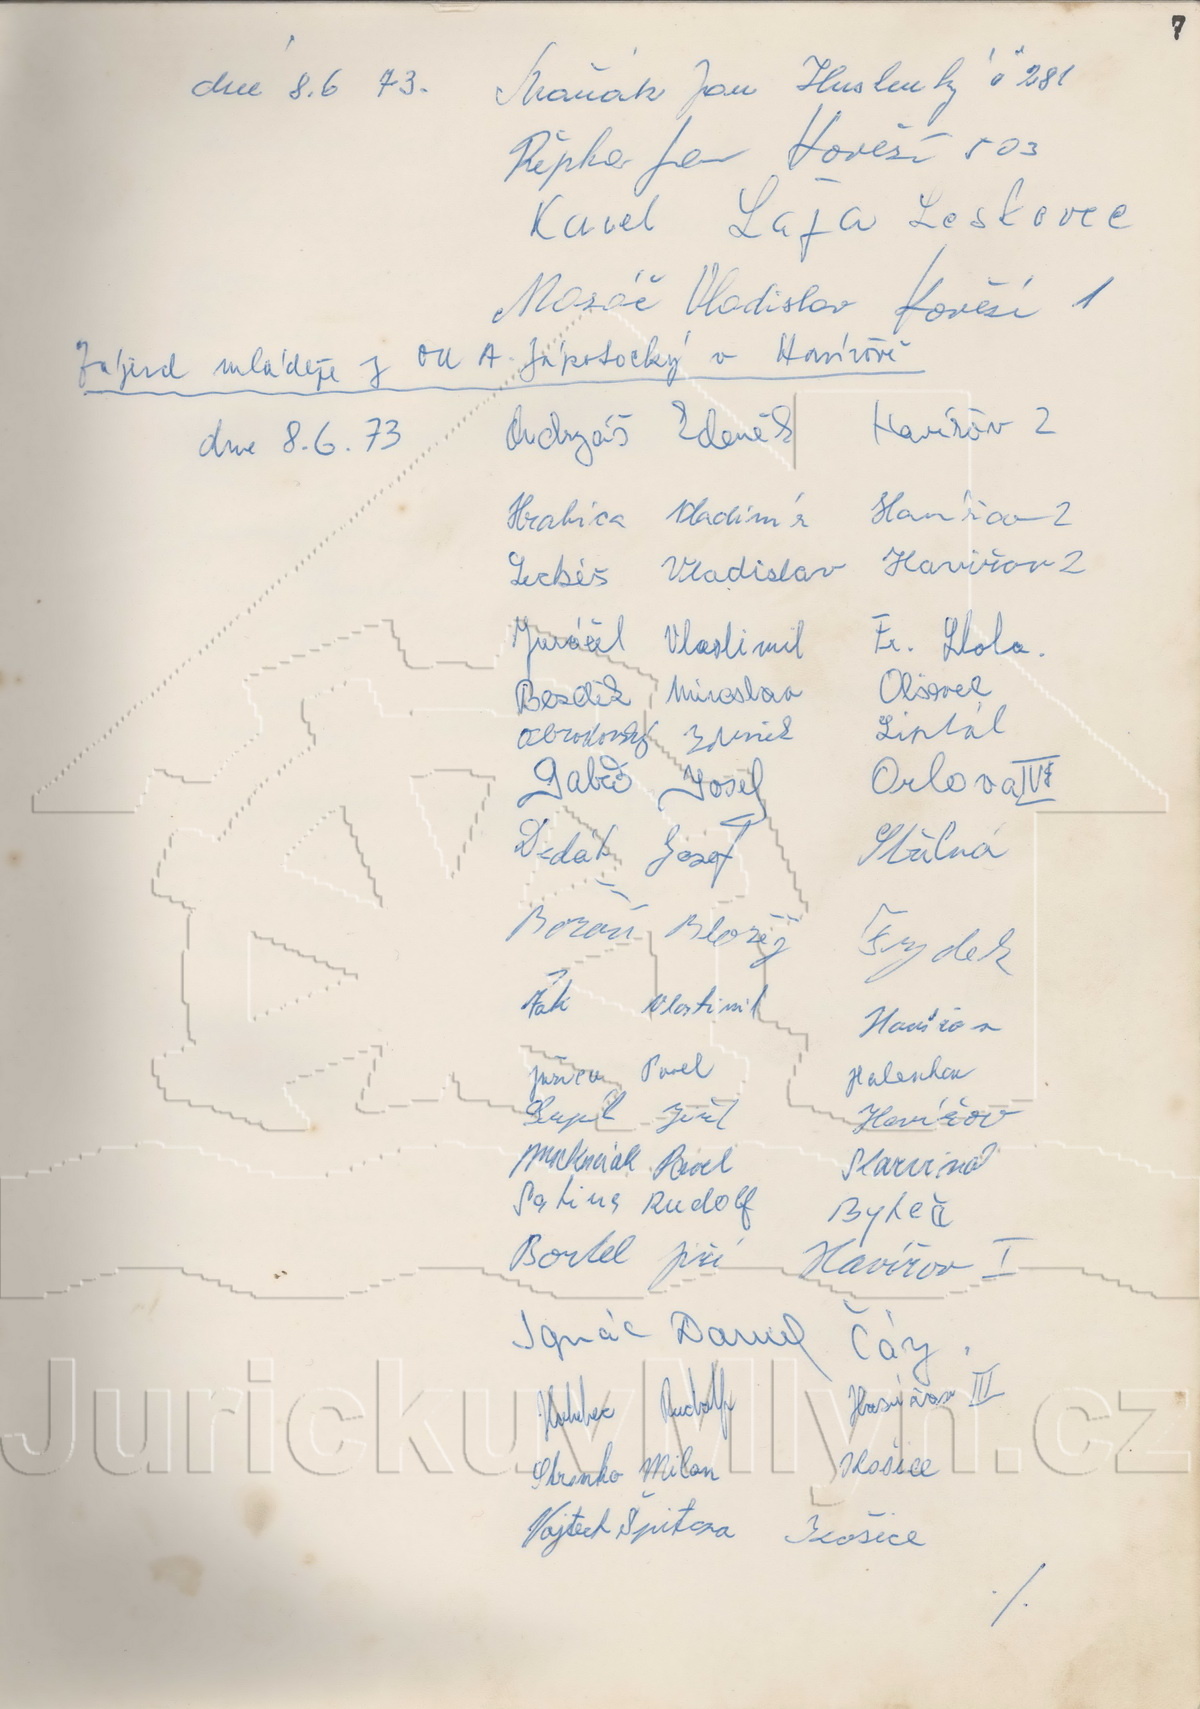 7
dne 8.6 73. Maňák Jan Huslenky č 281
Řepka Jan Hověší 503
Karel Laža Leskovec
Mozáč Vladislav Hověší 1
Zájezd mládeže z OU A. Zápotocký v Havířově
dne 8.6.73 Ondryáš Zdeněk Havířov 2
Hrabica Vladimír Havířov 2
Vladislav Havířov 2
Juráček Vlastimil Fr. Lhota.
Bezdík Miroslav Olšovec
Zdeněk Liptál
Gabeš Josef Orlova IV
Dedák Jozef Stálná
Blažej Frydek
Žák Vlastimil Havířov
Juřica Pavel Halenkov
Jiří Havířov
Pavel Karviná
Rudolf Bytča
Bortel Jiří Havířov I
Ignác Daniel Čáry.
Rudolf Havířov III
Milan Košice
Vojtech Špitora Košice
./.
JurickuvMlyn.cz